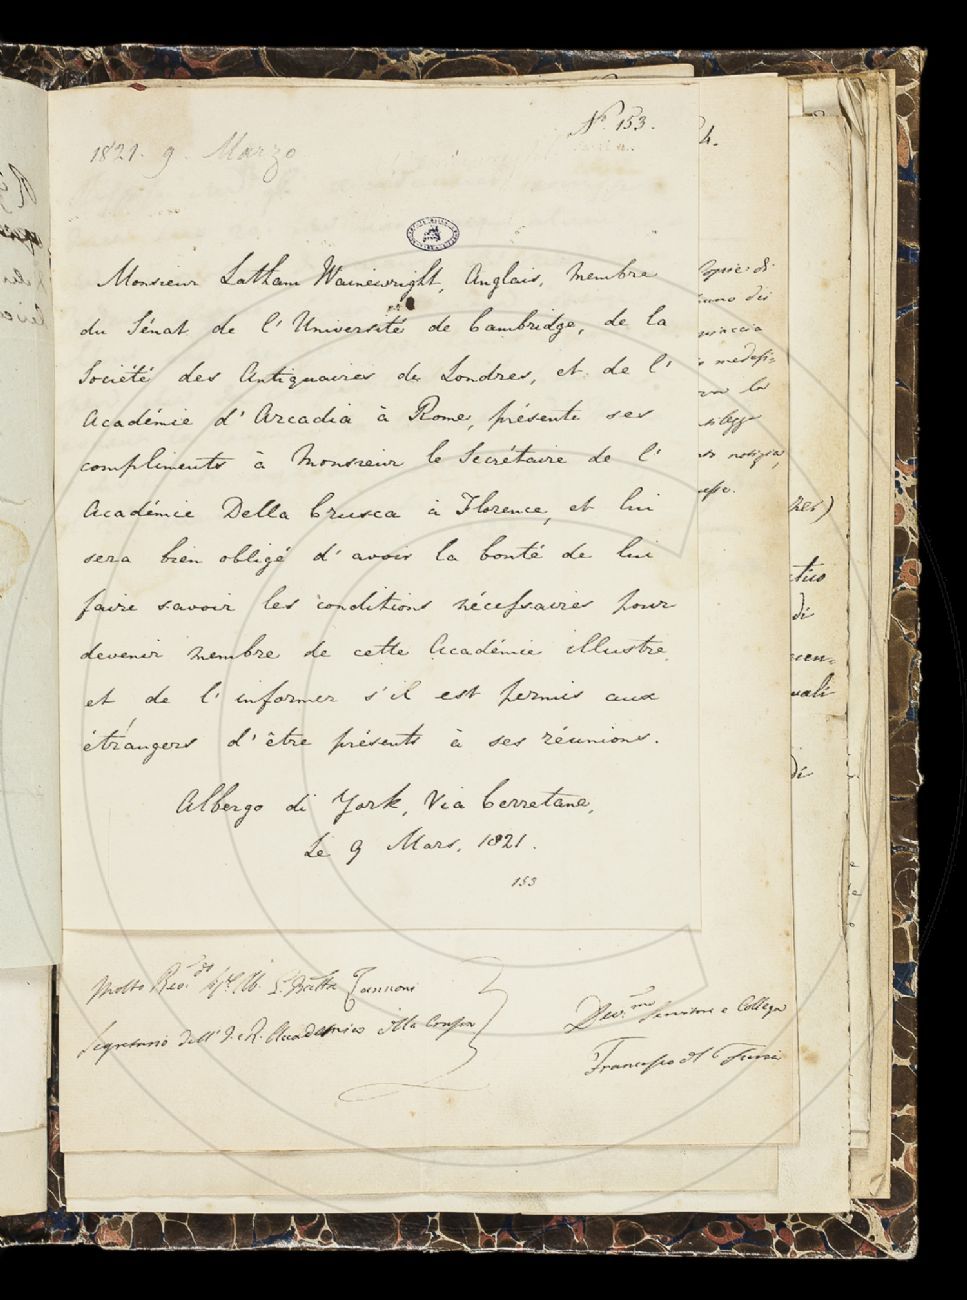 N.° 153.
1821. 9. Marzo
Monsieur Latham Wainewright, Anglais, membre
du Sénat de l'Université de Cambridge, de la
Société des Antiquaires de Londres, et de l'
Académie d'Arcadia à Rome, présente ses
compliments à Monsieur le Secrétaire de l'
Académie Della Crusca à Florence, et lui
sera bien obligé d'avoir la bonté de lui
faire savoir les conditions nécessaires pour
devenir membre de cette Académie illustre,
et de l'informer s'il est permis aux
étrangers d'être présents à ses réunions.
Albergo di York, Via Cerretane,
Le 9 Mars, 1821.
153
Molto Rev.do Batta Zannoni
Segretario dell' I. e R. Accademia della Crusca
Dev.mo Servitore e Collega
Francesco del Furia
4.
Copie di
medesi=
notizia,
di
uali
di